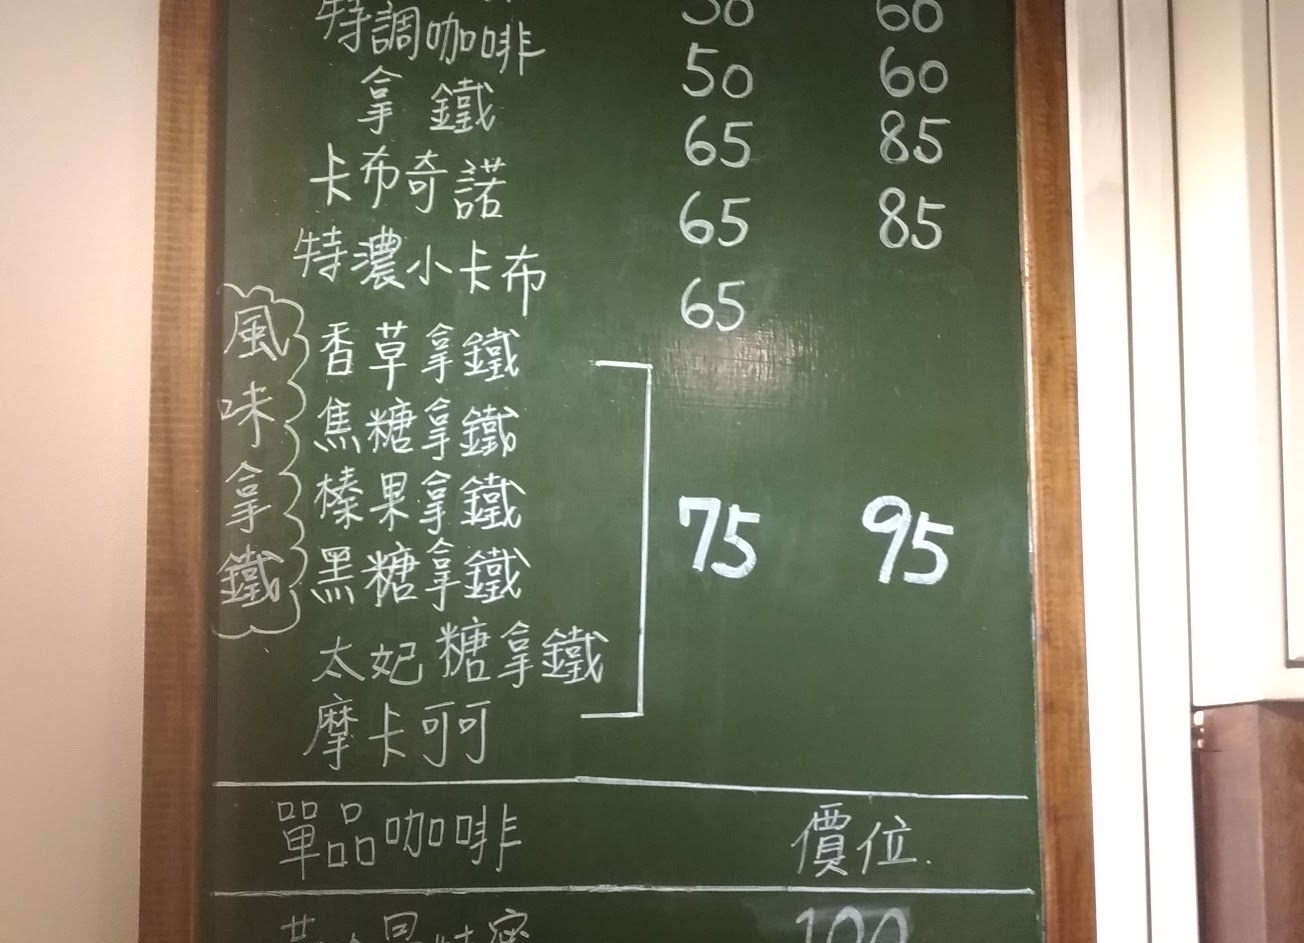 50 60
特調咖啡 50 60
拿鐵 65 85
卡布奇諾 65 85
特濃小卡布 65
風味拿鐵
香草拿鐵
焦糖拿鐵
榛果拿鐵
黑糖拿鐵
太妃糖拿鐵
摩卡可可
75 95
單品咖啡 價位
100